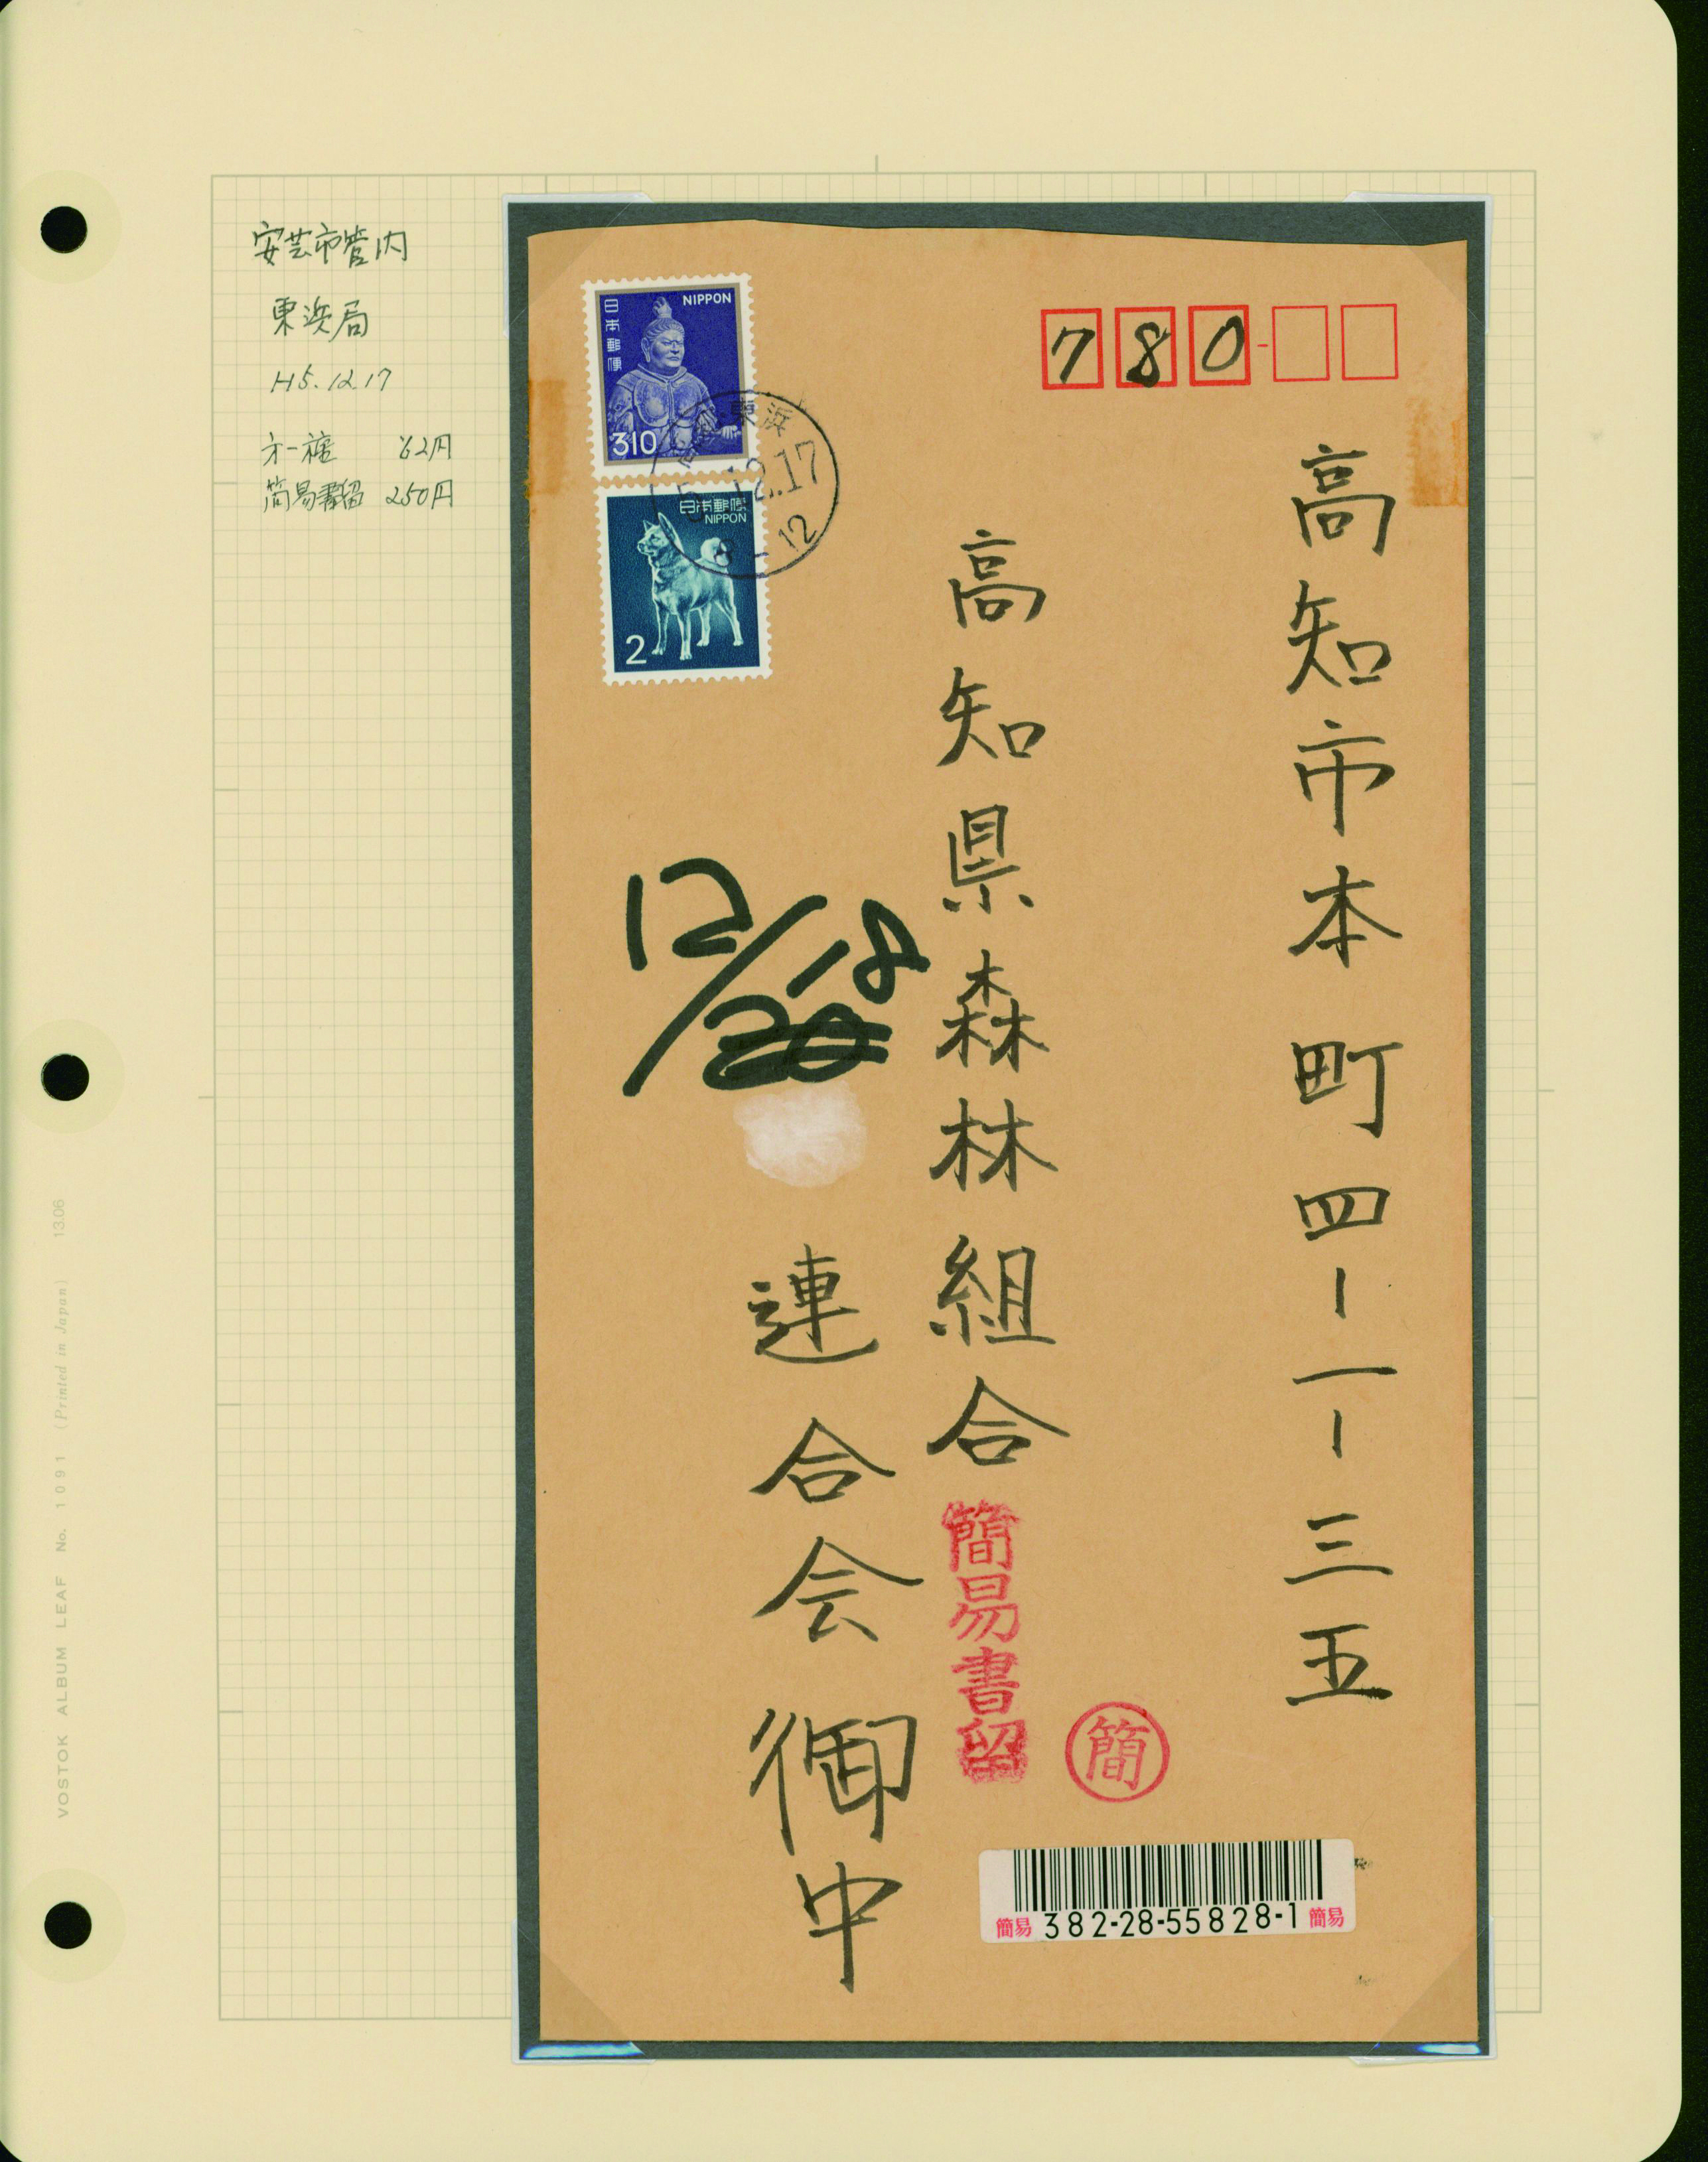 安芸市管内
東浜局
H5.12.17
才一種 62円
簡易書留 250円
日本郵便
NIPPON
310
日本郵便
NIPPON
2
高知・東浜
5.12.17
8-12
780-
高知市本町四-一-三五
高知県森林組合
連合会御中
12/18
20
簡易書留
簡
簡易 382-28-55828-1 簡易
VOSTOK ALBUM LEAF No. 1091 (Printed in Japan) 13.06